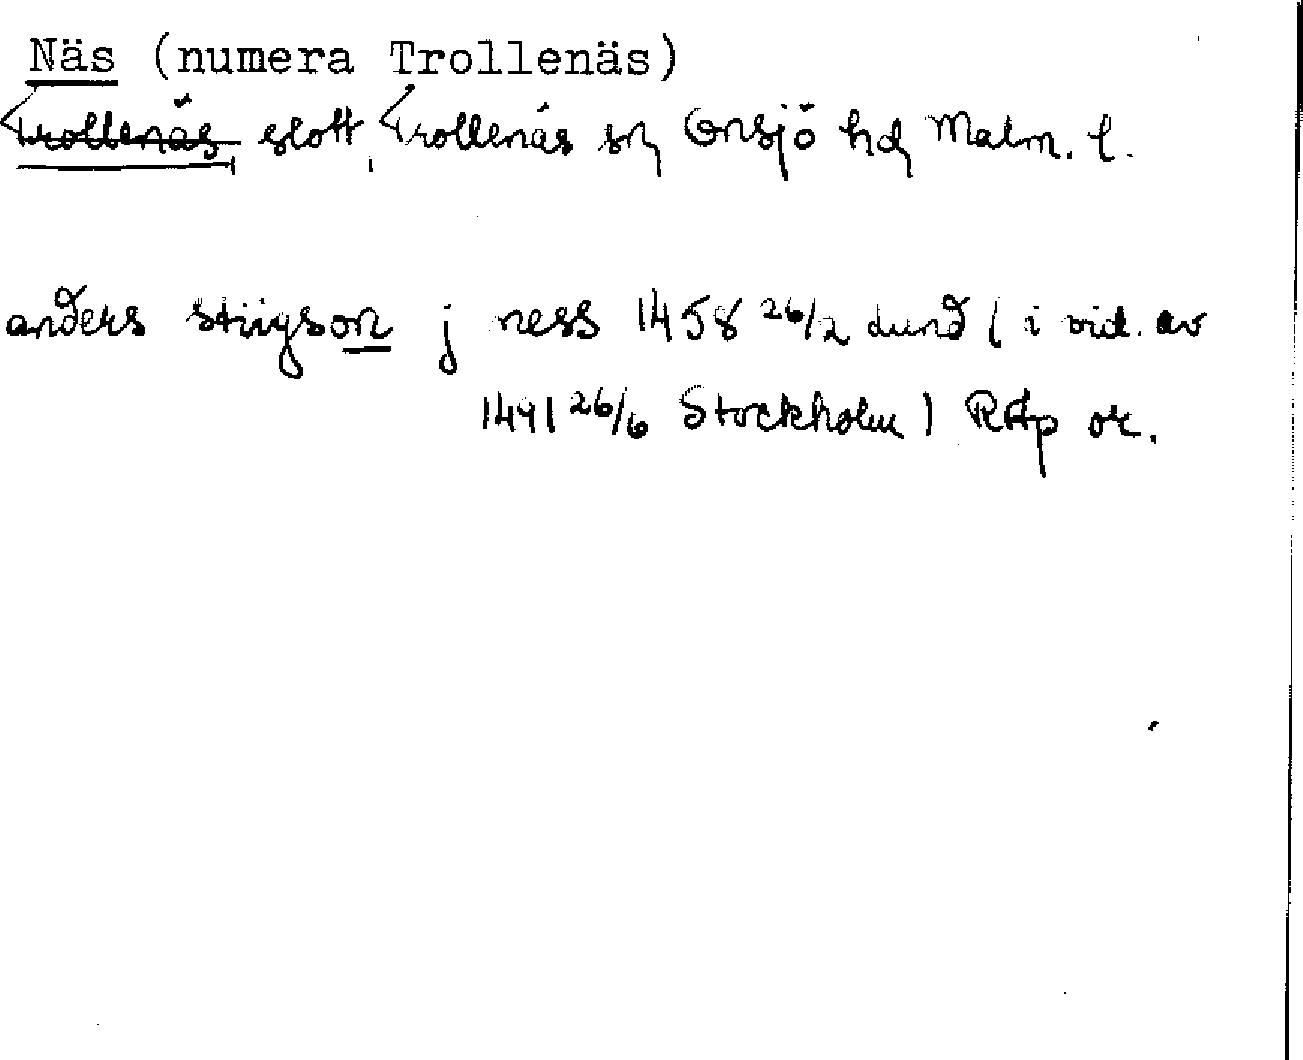 Näs (numera Trollenäs)
Trollenäs slott, Trollenäs sn, Onsjö hd, Malm. l.
anders stiigson j ness 1458 26/2 Lund ( i vid. av
1491 26/6 Stockholm ) RAp or.